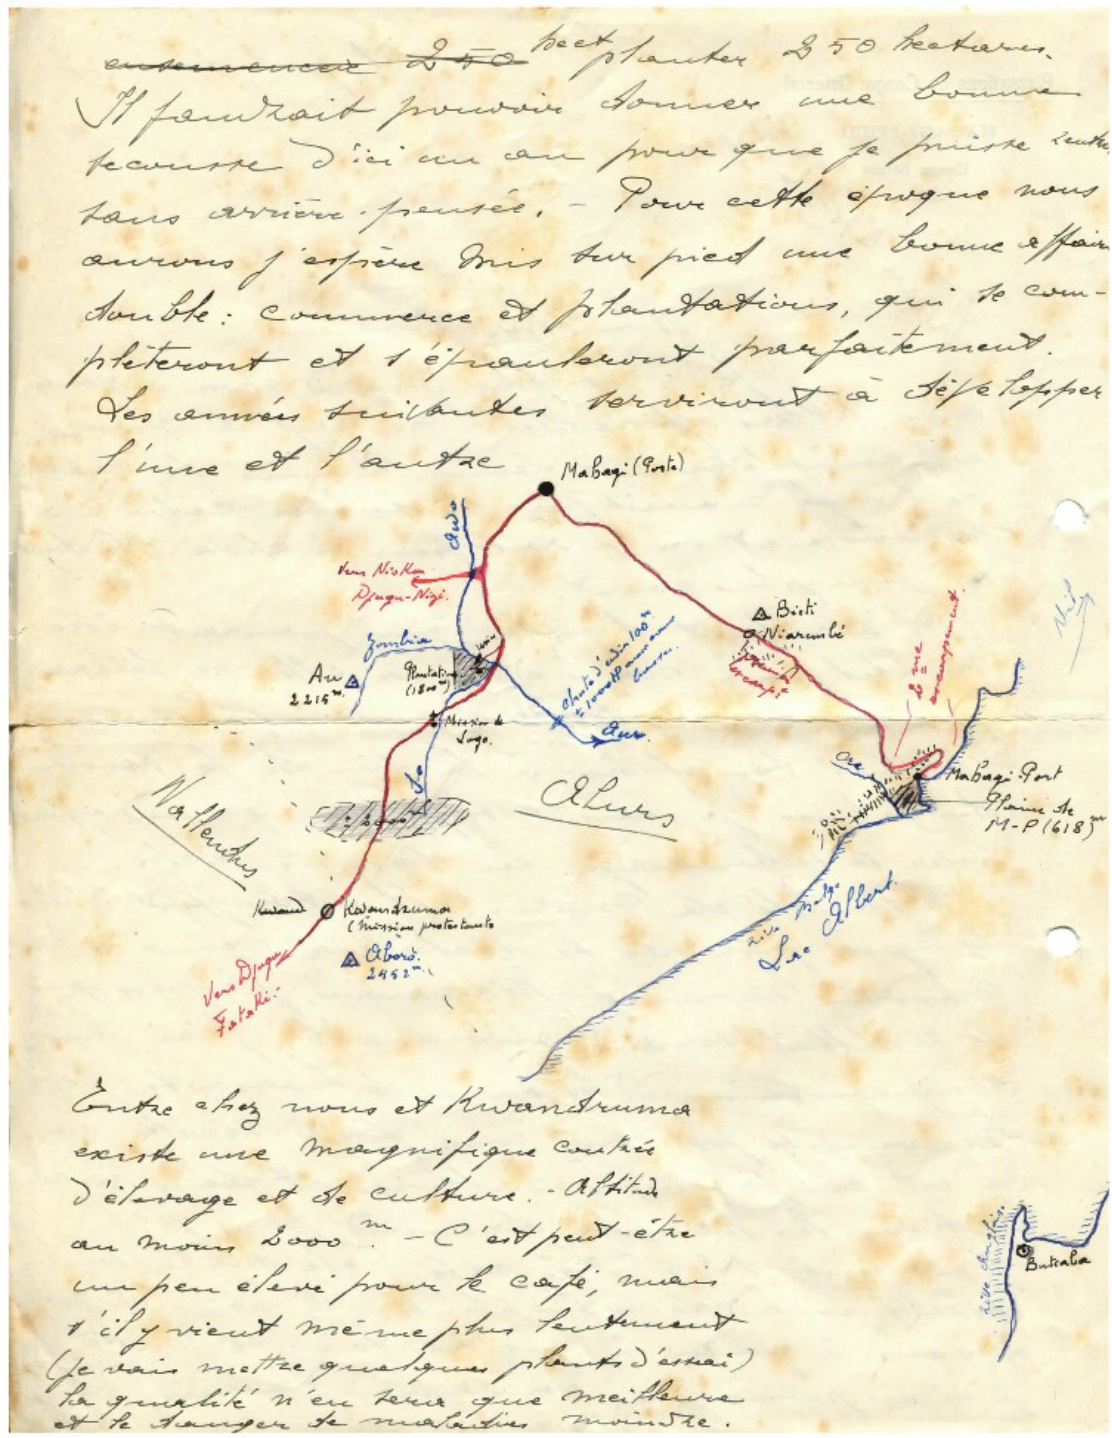 ensemencer 250 hect planter 250 hectares.
Il faudrait pouvoir donner une bonne
secousse d'ici un an pour que je puisse rentrer
sans arrière-pensée. - Pour cette époque nous
aurons j'espère mis sur pied une bonne affaire
double : commerce et plantations, qui se com-
plèteront et s'épauleront parfaitement.
Les années suivantes serviront à développer
l'une et l'autre
Mahagi (Poste)
Awo
Vers Nioka
Djugu-Nizi.
Zombia
Au
2215m.
Plantation
(1800m)
usine
Mission de
Logo.
chute d'eau 100m
± 1000 HP
Aur.
Bisti
Niarembé
1er
escarpt
2me
escarpement.
Nil
Mahagi-Port
Plaine de
M-P (618)m
Alurs
Wallendus
± 2000m
Kwand
Kwandruma
(Mission protestante
Aboro.
2452m.
Vers Djugu
Fataki.-
rive belge
Lac Albert.
Entre chez nous et Kwandruma
existe une magnifique contrée
d'élevage et de culture. - Altitude
au moins 2000 m. - C'est peut-être
un peu élevé pour le café, mais
s'il y vient même plus lentement
(je vais mettre quelques plants d'essai)
la qualité n'en sera que meilleure
et le danger de maladies moindre.
rive anglaise
Butiaba